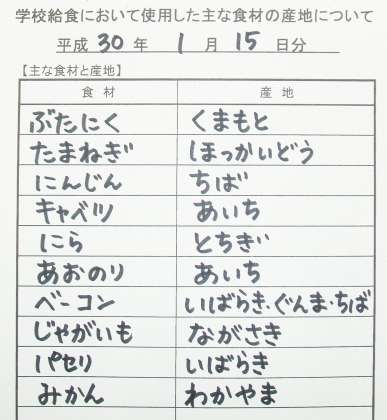 学校給食において使用した主な食材の産地について
平成 30 年 1 月 15 日分
【主な食材と産地】
食材 産地
ぶたにく くまもと
たまねぎ ほっかいどう
にんじん ちば
キャベツ あいち
にら とちぎ
あおのり あいち
ベーコン いばらき・ぐんま・ちば
じゃがいも ながさき
パセリ いばらき
みかん わかやま